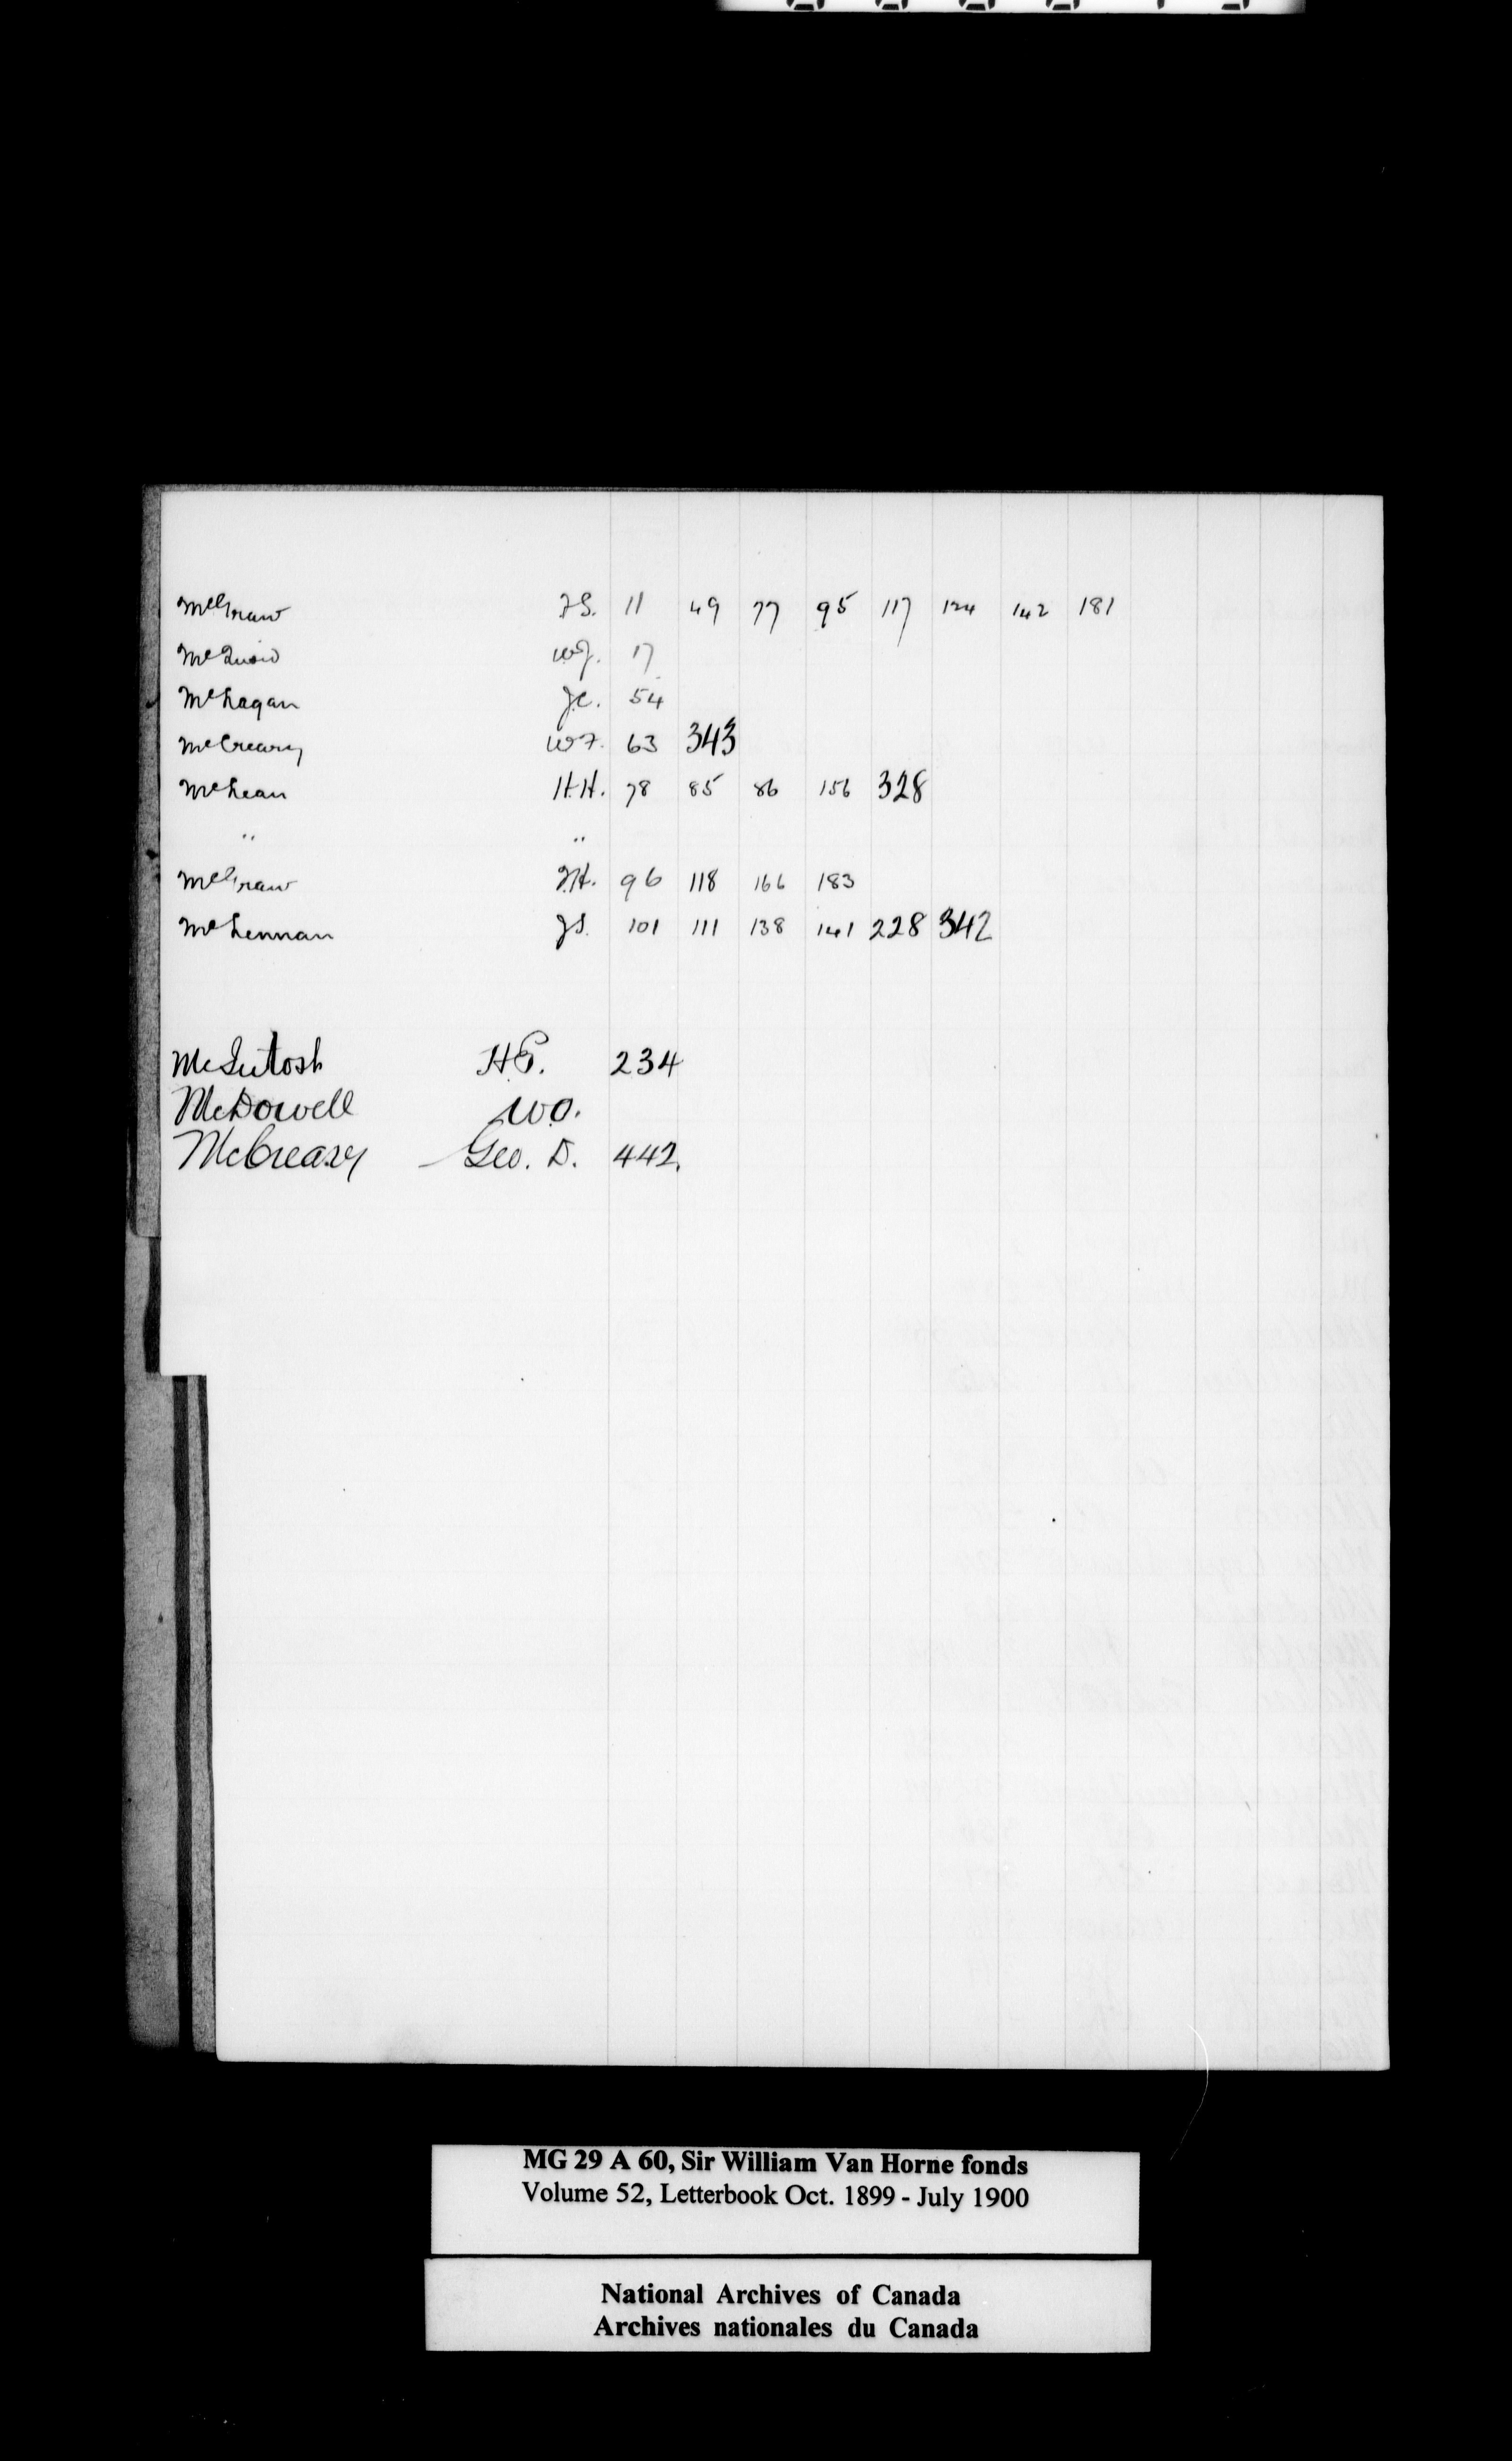 McGraw J.S. 11 49 77 95 117 124 142 181
McQuaid W.J. 17
McLagan J.C. 54
McCreary W.F. 63 343
McLean H.H. 78 85 86 156 328
" "
McGraw T.H. 96 118 166 183
McLennan J.S. 101 111 138 141 228 342
McIntosh H.P. 234
McDowell W.O.
McCreary Geo. D. 442.
MG 29 A 60, Sir William Van Horne fonds
Volume 52, Letterbook Oct. 1899 - July 1900
National Archives of Canada
Archives nationales du Canada